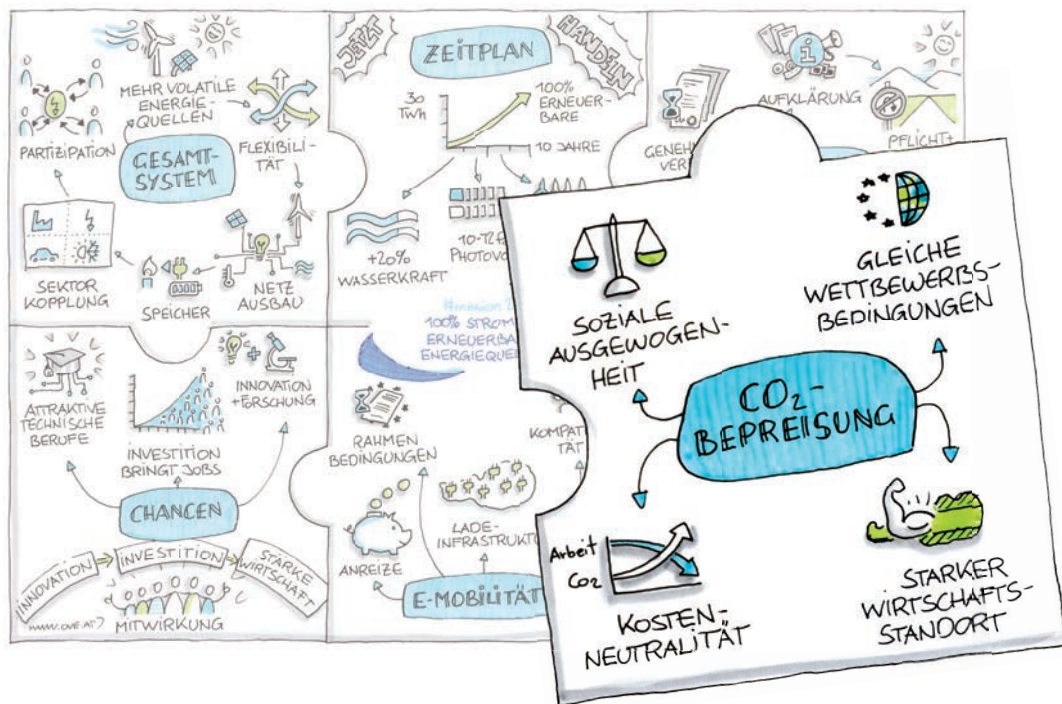 MEHR VOLATILE
ENERGIE-
QUELLEN
PARTIZIPATION
GESAMT-
SYSTEM
FLEXIBILI-
TÄT
SEKTOR
KOPPLUNG
SPEICHER
NETZ
AUSBAU
JETZT
ZEITPLAN
HANDELN
30
TWh
100%
ERNEUER-
BARE
10 JAHRE
+20%
WASSERKRAFT
i
AUFKLÄRUNG
PFLICHT+
100% STROM
ENERGIEQUE
ATTRAKTIVE
TECHNISCHE
BERUFE
INNOVATION
+FORSCHUNG
INVESTITION
BRINGT JOBS
CHANCEN
INNOVATION
INVESTITION
STARKE
WIRTSCHAFT
MITWIRKUNG
www.ove.at
RAHMEN
BEDINGUNGEN
ANREIZE
LADE-
INFRASTRUKTU
E-MOBILITÄT
SOZIALE
AUSGEWOGEN-
HEIT
GLEICHE
WETTBEWERBS-
BEDINGUNGEN
CO2-
BEPREISUNG
Arbeit
CO2
KOSTEN-
NEUTRALITÄT
STARKER
WIRTSCHAFTS-
STANDORT